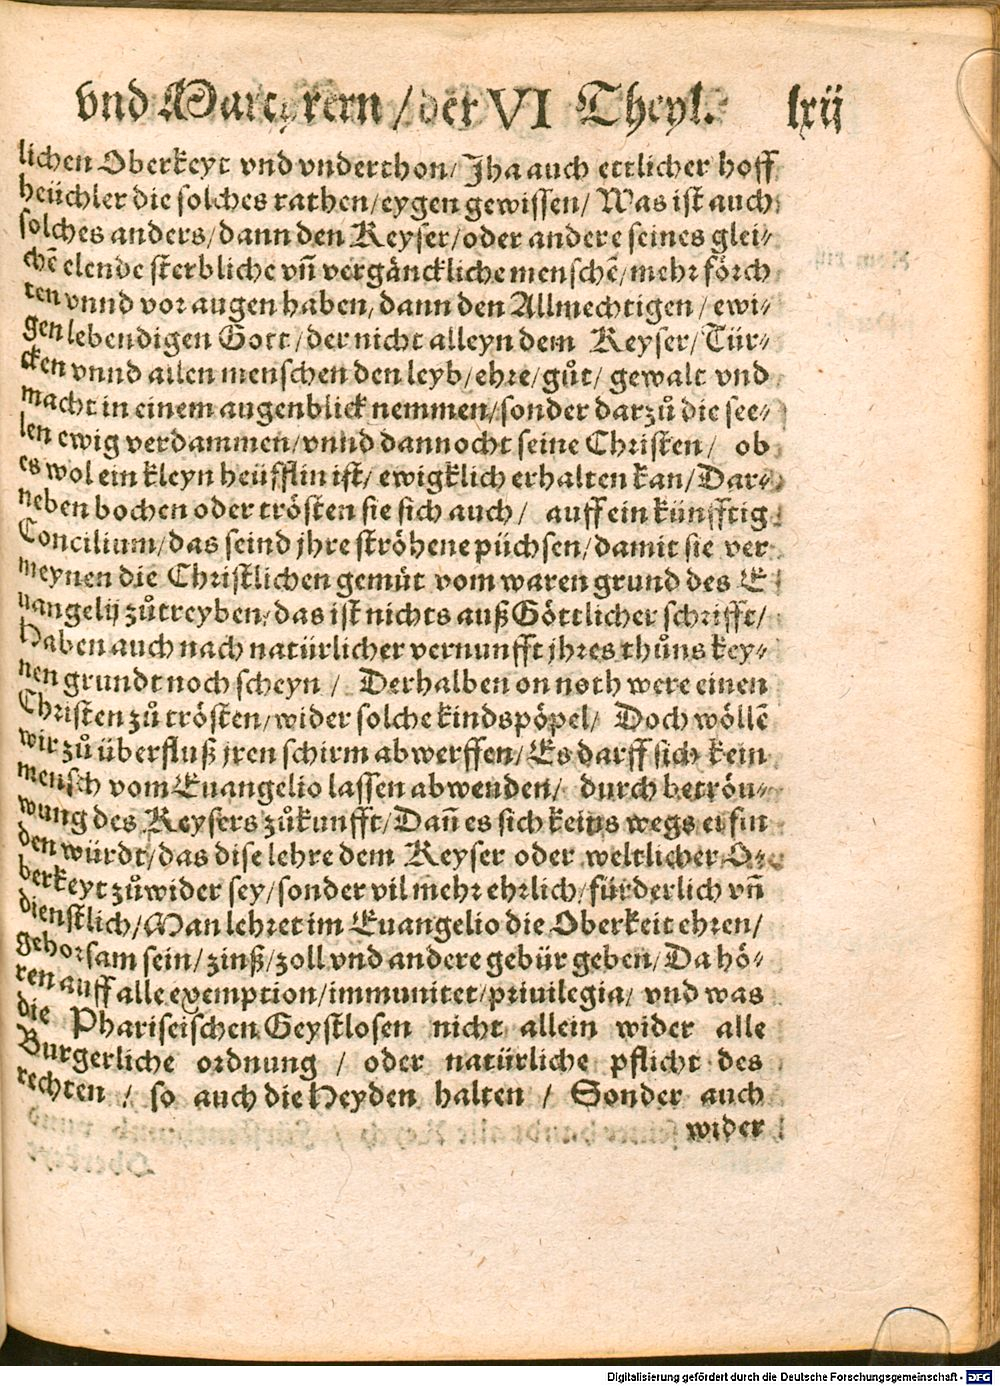 vnd Martyrern / der VI Theyl. lxij
lichen Oberkeyt vnd vnderthon / Jha auch ettlicher hoff
heüchler die solches rathen / eygen gewissen / Was ist auch
solches anders / dann den Keyser / oder andere seines glei⸗
chẽ elende sterbliche vñ vergänckliche menschẽ / mehr förch
ten vnnd vor augen haben / dann den Allmechtigen / ewi⸗
gen lebendigen Gott / der nicht alleyn dem Keyser / Tür⸗
cken vnnd allen menschen den leyb / ehre / gůt / gewalt vnd
macht in einem augenblick nemmen / sonder darzů die see⸗
len ewig verdammen / vnnd dannocht seine Christen / ob
es wol ein kleyn heüfflin ist / ewigklich erhalten kan / Dar⸗
neben bochen oder trösten sie sich auch / auff ein künfftig
Concilium / das seind jhre ströhene püchsen / damit sie ver
meynen die Christlichen gemüt vom waren grund des E
uangelij zůtreyben / das ist nichts auß Göttlicher schrifft /
Haben auch nach natürlicher vernunfft jhres thůns key⸗
nen grundt noch scheyn / Derhalben on noth were einen
Christen zů trösten / wider solche kindspöpel / Doch wöllẽ
wir zů überfluß jren schirm abwerffen / Es darff sich kein
mensch vom Euangelio lassen abwenden / durch betröu⸗
wung des Keysers zůkunfft / Dañ es sich keins wegs erfin
den würdt / das dise lehre dem Keyser oder weltlicher O⸗
berkeyt zůwider sey / sonder vil mehr ehrlich / fürderlich vñ
dienstlich / Man lehret im Euangelio die Oberkeit ehren /
gehorsam sein / zinß / zoll vnd andere gebür geben / Da hö⸗
ren auff alle exemption / immunitet / priuilegia / vnd was
die Phariseischen Geystlosen nicht allein wider alle
Burgerliche ordnung / oder natürliche pflicht des
rechten / so auch die Heyden halten / Sonder auch
wider
Digitalisierung gefördert durch die Deutsche Forschungsgemeinschaft - DFG